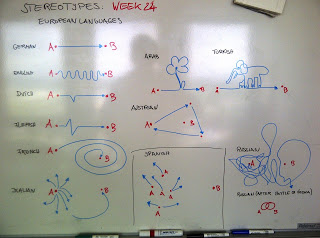 STEREOTYPES: WEEK 24
EUROPEAN LANGUAGES
GERMAN A B
ARAB
A B
TURKISH
A B
ENGLISH A B
DUTCH A B
AUSTRIAN
A B
A B
B
A
SPANISH
A A A A A A
B
RUSSIAN
A B
ITALIAN A B
RUSSIAN (AFTER BOTTLE OF VODKA)
A B